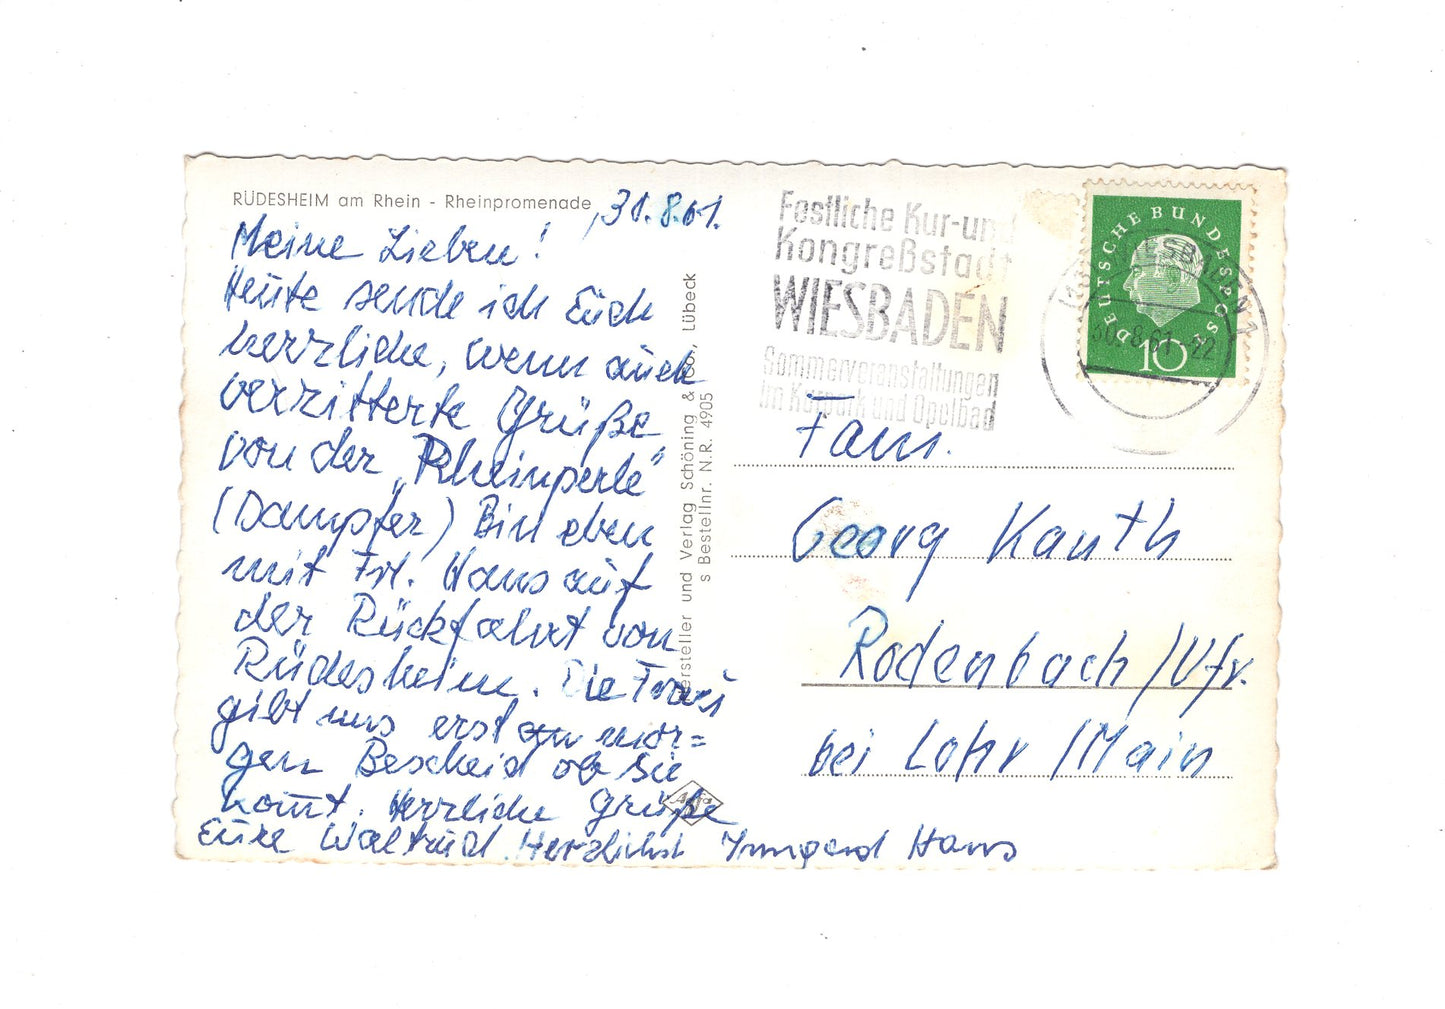 RÜDESHEIM am Rhein - Rheinpromenade
30.8.61.
Meine Lieben!
Heute sende ich Euch
herzliche, wenn auch
verzitterte Grüße
von der „Rheinperle"
(Dampfer) Bin eben
mit Frl. Hans auf
der Rückfahrt von
Rüdesheim. Die
gibt uns erst am mor=
gen Bescheid ob sie
kommt. Herzliche Grüße
Eure Waltrud. Herzlichst Irmgard Hans
Hersteller und Verlag Schöning & Co., Lübeck
s Bestellnr. N.R. 4905
Agfa
Festliche Kur-und
Kongreßstadt
WIESBADEN
Sommerveranstaltungen
im Kurpark und Opelbad
WIESBADEN 1
30.8.61-22
DEUTSCHE BUNDESPOST
10
Fam.
Georg Kauth
Rodenbach/Ufr.
bei Lohr/Main